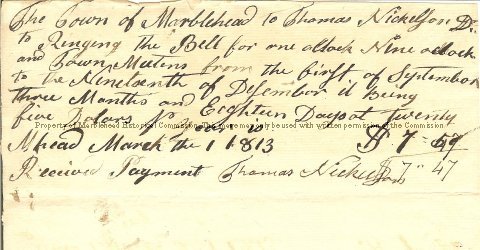 The Town of Marblehead to Thomas Nickelson Dr.
to Ringing the Bell for one oClock Nine oClock
and Town Meetens from the first of September
to the Nineteenth of Desember it Being
three Months and Eighteen Days at Twenty
five Dolars
Property of Marblehead Historical Commission. This image may only be used with written permission of the Commission.
Mhead March the 1 1813 $ 7 = 47
Received Payment Thomas Nickelson $ 7 " 47